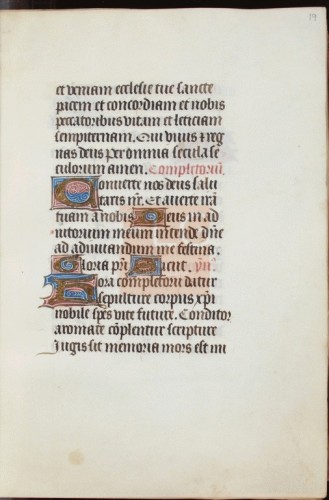 19
et veniam ecclesie tue sancte
pacem et concordiam et nobis
peccatoribus vitam et leticiam
sempiternam. Qui vivis ⁊ reg
nas deus per omnia secula se
culorum amen. Completoriũ.
Converte nos deus salu
taris nr̃. Et averte irã
tuam a nobis Deus in ad
iutorium meum intende dñe
ad adiuvandum me festina.
Gloria pr̃i Sicut. yñ.
Hora completorii datur
sepulture corpus xp̃i
nobile spes vite future. Conditor
aromate cõplentur scripture
Jugis sit memoria mors est mi